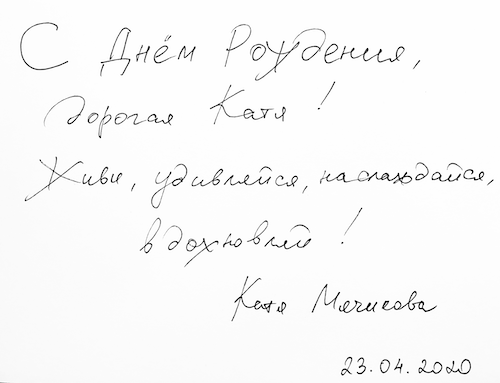 С Днём Рождения,
дорогая Катя!
Живи, удивляйся, наслаждайся,
вдохновляй!
Катя
23.04.2020